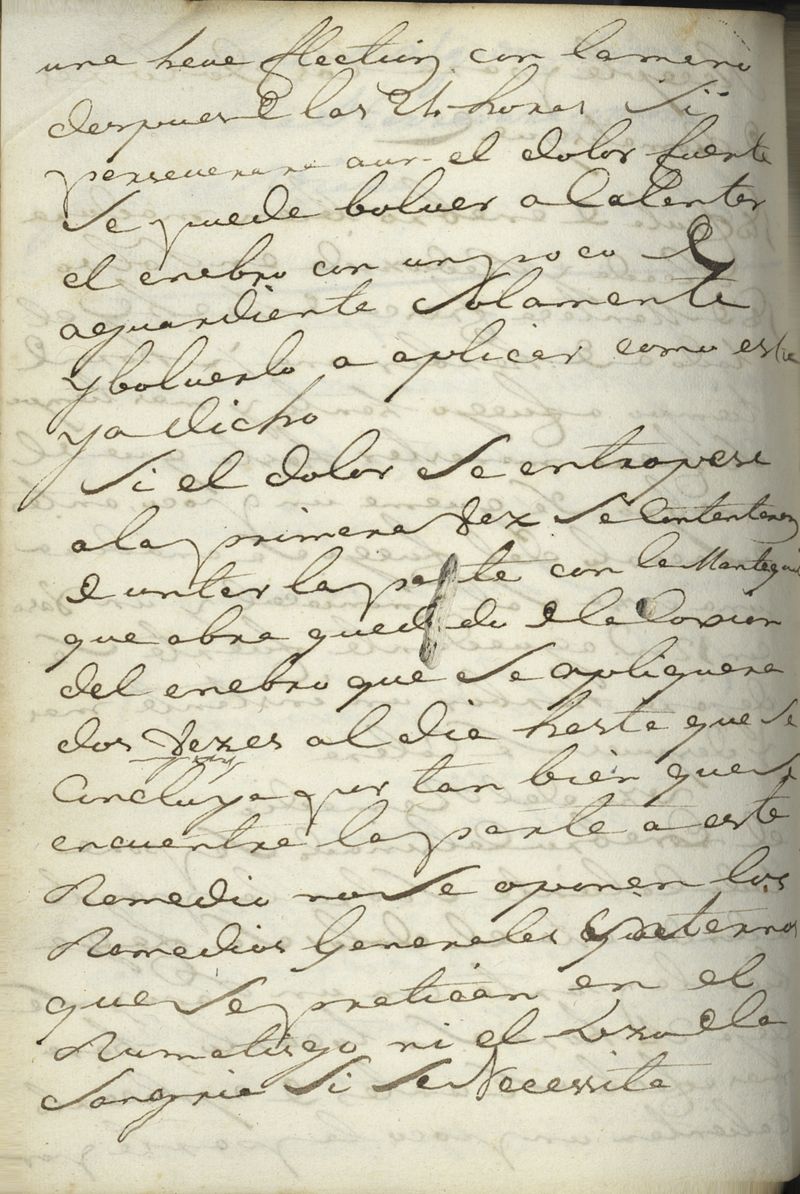 una leve flection con la mano
despues de las 24 horas Si
perseverare aun el dolor fuerte
Se puede bolver a calentar
el enebro con un poco de
aguardiente Solamente
y bolverlo a aplicar como esta
ya dicho
Si el dolor Se entropese
a la primera vez Se contentaran
de untar la parte con la Mantequi
que abra quedado de la locion
del enebro que Se apliquera
dos vezes al dia hasta que Se
Concluya por tan bien que Se
encuentra la parte a este
Remedio no Se oponen los
Remedios Generales internos
que Se pratican en el
Rumatisgo ni el uzo de la
Sangria Si Se Necessita